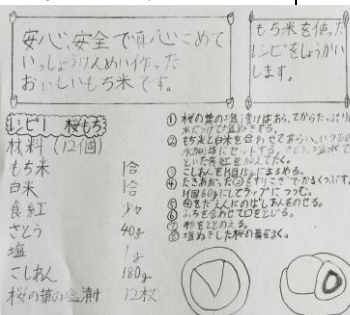 安心、安全で真心こめて
いっしょうけんめい作った
おいしいもち米です。
もち米を使った
レシピをしょうかい
します。
レシピ1 桜もち
材料(12個)
もち米 1合
白米 1合
食紅 少々
さとう 40g
塩 1g
こしあん 180g
桜の葉の塩漬け 12枚
① 桜の葉の塩漬けはあらってからたっぷり
水につけて塩ぬきする。
② もち米と白米を合わせてあらい、
水加
といた食紅を
③ こしあんを12個にまるめる。
④ たきあがった②をすりこぎでかるくつぶす。
1個60gにしてラップにつつむ。
⑤ ④をだ円にのばしあんをのせる。
⑥ ふちを合わせて口をとじる。
⑦ 形をととのえる。
⑧ 塩ぬきした桜の葉をまく。